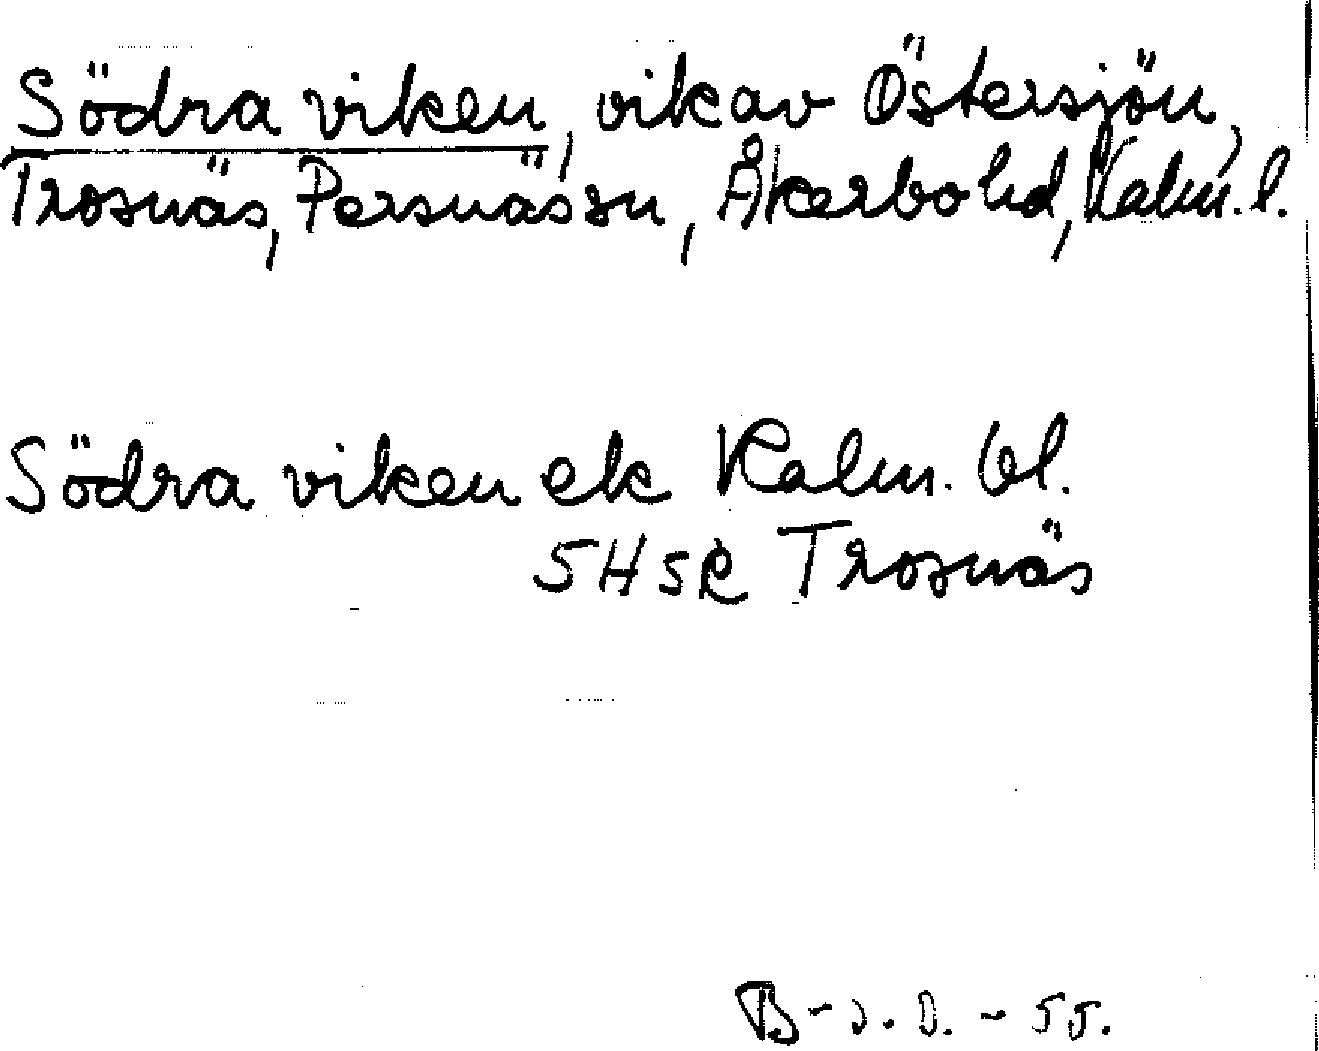 Södra viken, vik av Östersjön,
Trosnäs, Persnäs sn, Åkerbo hd, Kalm. l.
Södra viken ek Kalm. bl.
5H 5e Trosnäs